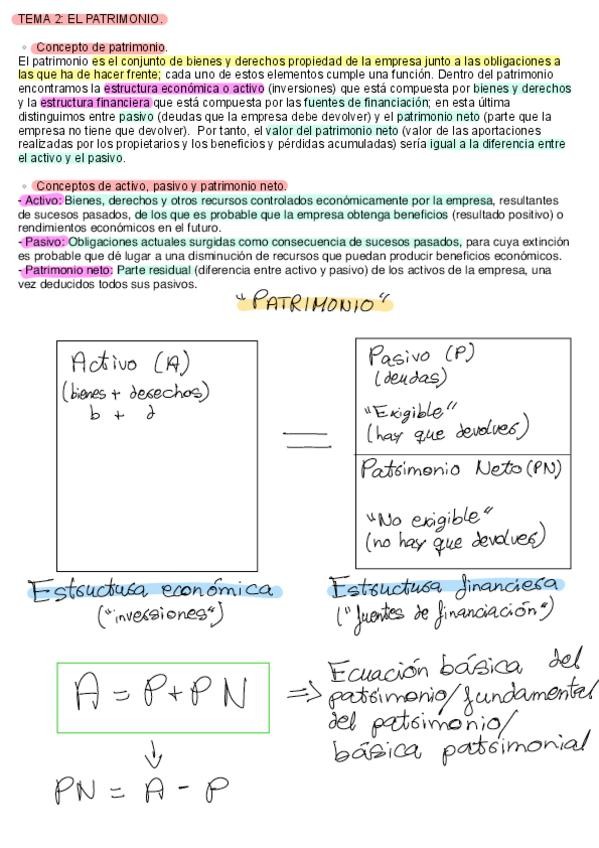 TEMA 2: EL PATRIMONIO.
◦ Concepto de patrimonio.
El patrimonio es el conjunto de bienes y derechos propiedad de la empresa junto a las obligaciones a
las que ha de hacer frente; cada uno de estos elementos cumple una función. Dentro del patrimonio
encontramos la estructura económica o activo (inversiones) que está compuesta por bienes y derechos
y la estructura financiera que está compuesta por las fuentes de financiación; en esta última
distinguimos entre pasivo (deudas que la empresa debe devolver) y el patrimonio neto (parte que la
empresa no tiene que devolver). Por tanto, el valor del patrimonio neto (valor de las aportaciones
realizadas por los propietarios y los beneficios y pérdidas acumuladas) sería igual a la diferencia entre
el activo y el pasivo.
◦ Conceptos de activo, pasivo y patrimonio neto.
- Activo: Bienes, derechos y otros recursos controlados económicamente por la empresa, resultantes
de sucesos pasados, de los que es probable que la empresa obtenga beneficios (resultado positivo) o
rendimientos económicos en el futuro.
- Pasivo: Obligaciones actuales surgidas como consecuencia de sucesos pasados, para cuya extinción
es probable que dé lugar a una disminución de recursos que puedan producir beneficios económicos.
- Patrimonio neto: Parte residual (diferencia entre activo y pasivo) de los activos de la empresa, una
vez deducidos todos sus pasivos.
"PATRIMONIO"
Activo (A)
(bienes + derechos)
b + d
=
Pasivo (P)
(deudas)
"Exigible"
(hay que devolver)
Patrimonio Neto (PN)
"No exigible"
(no hay que devolver)
Estructura económica
("inversiones")
Estructura financiera
("fuentes de financiación")
A = P + PN
⇒ Ecuación básica del
patrimonio/fundamental
del patrimonio/
básica patrimonial
↓
PN = A - P